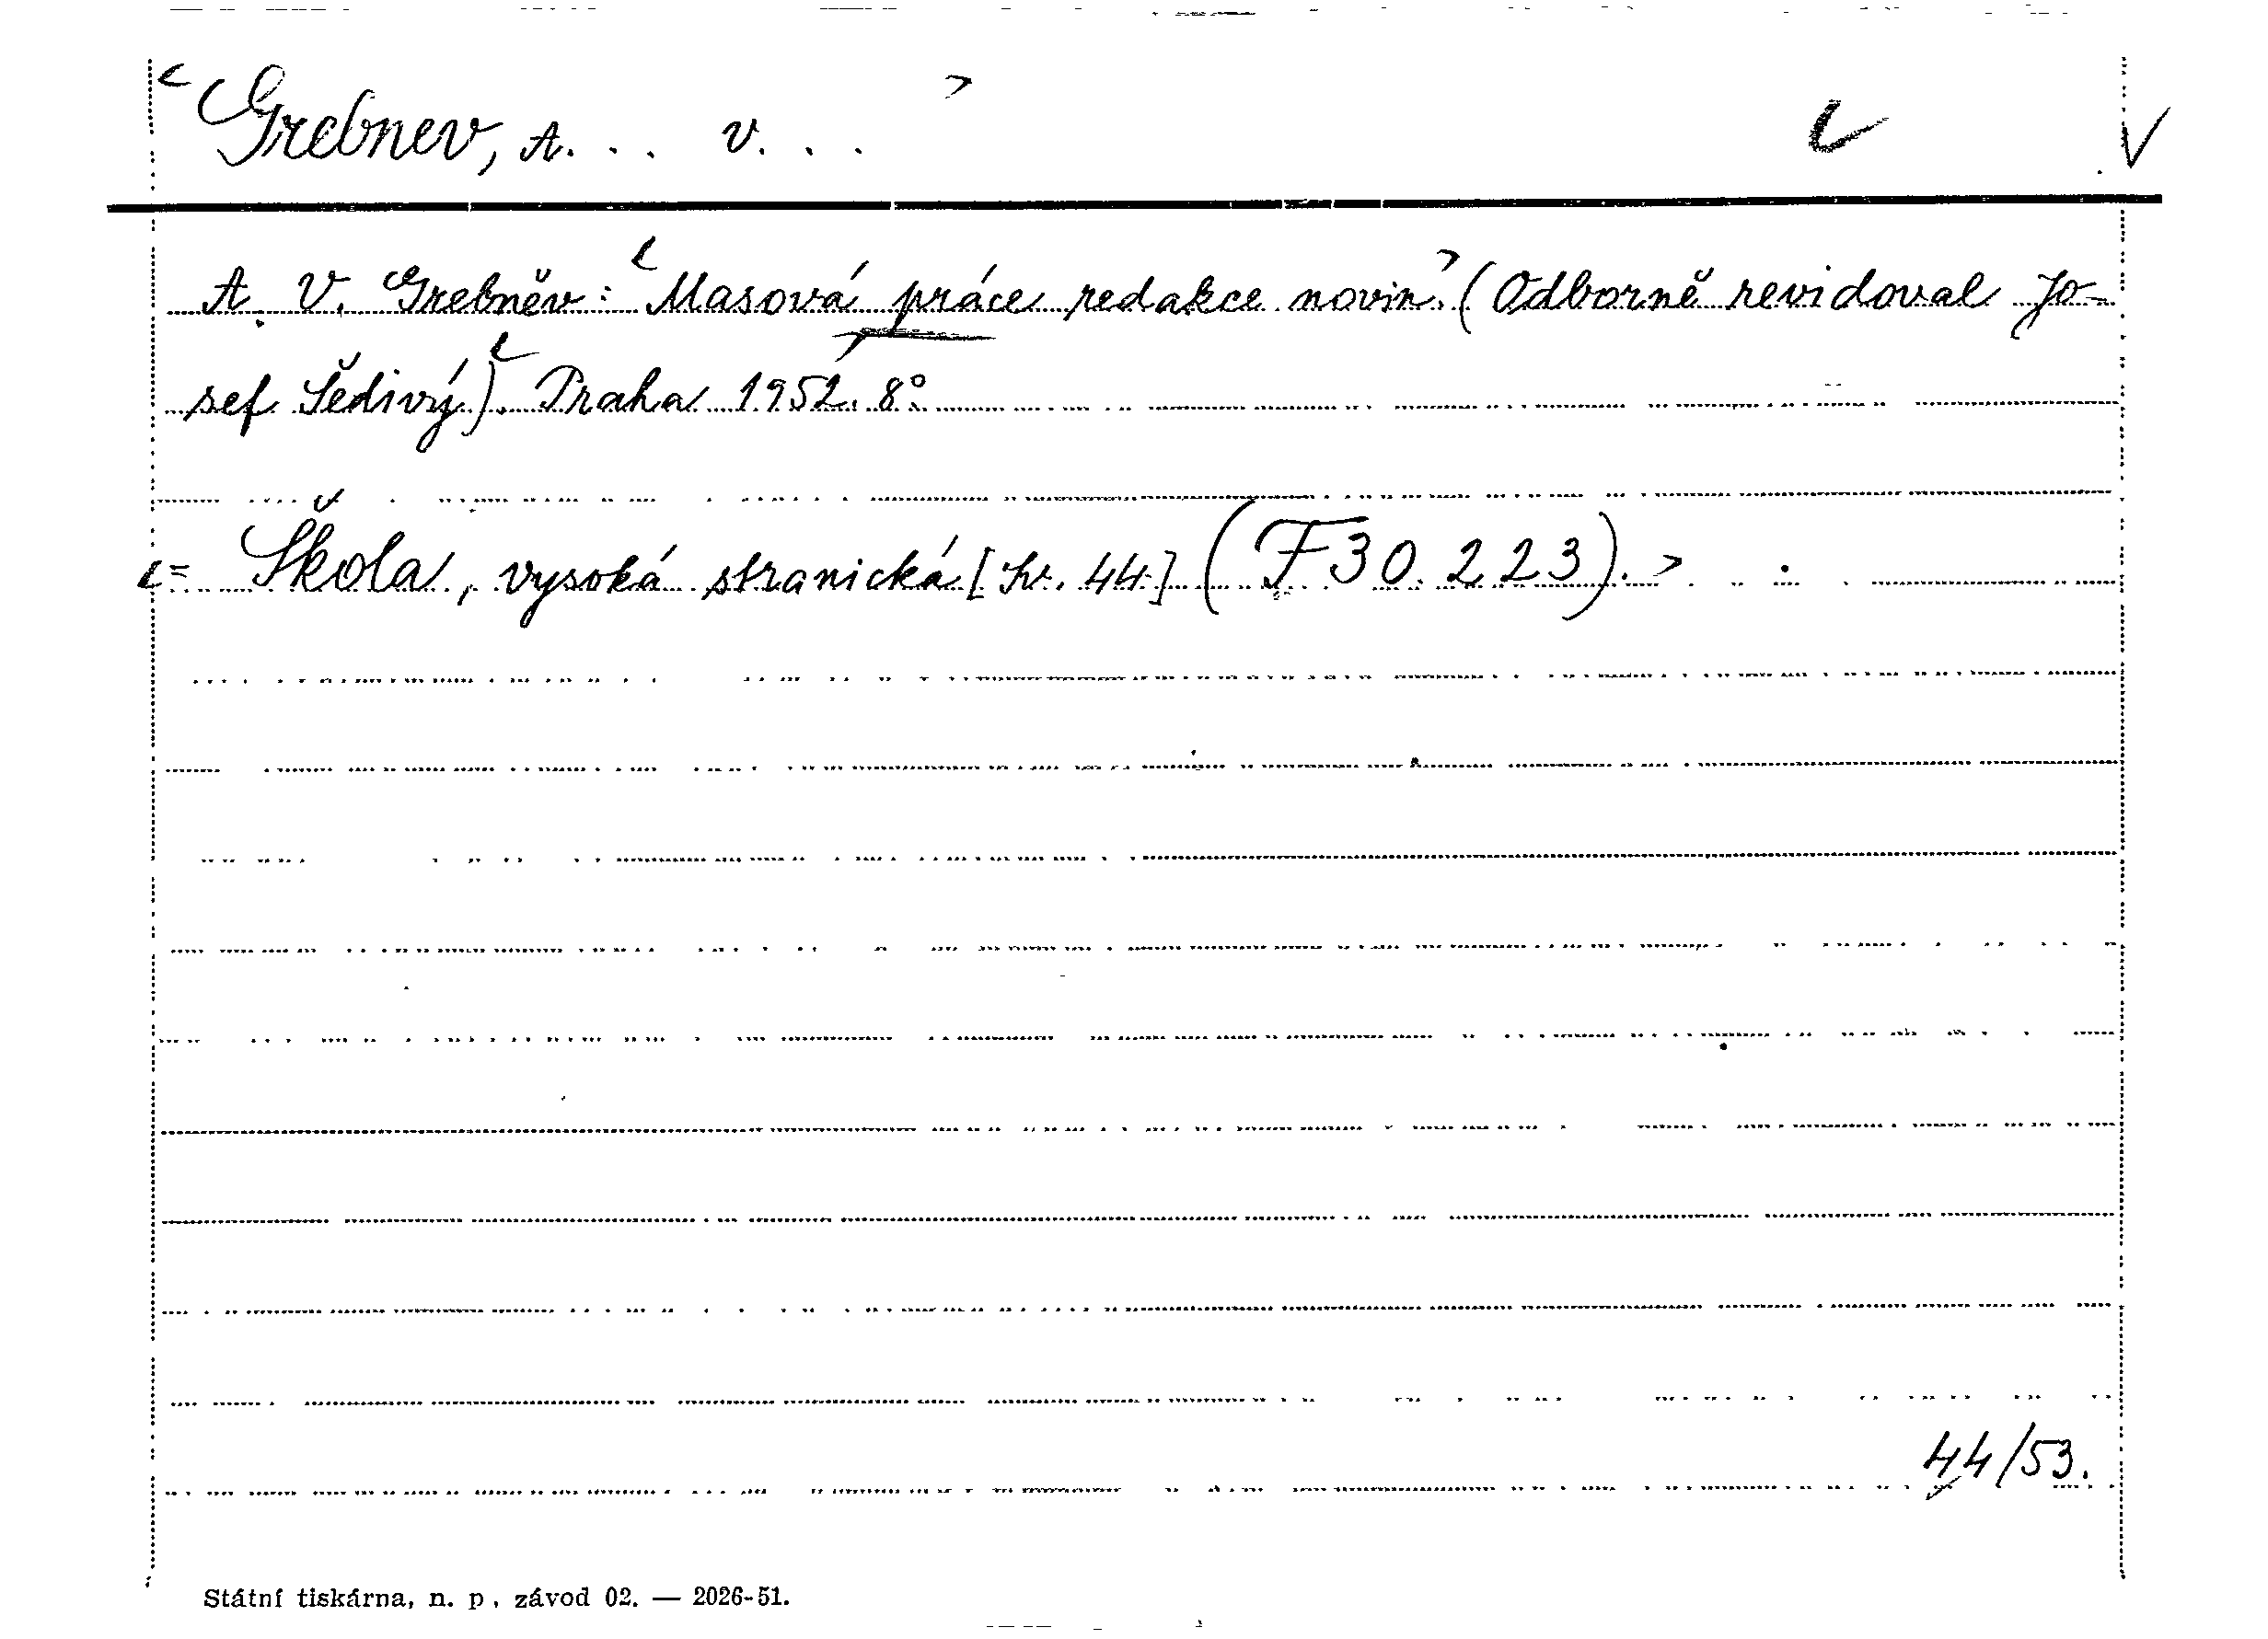 Grebnev, A. . . V. . .
A. V. Grebněv: Masová práce redakce novin. (Odborně revidoval Jo-
sef Šedivý). Praha 1952. 8°.
= Škola, vysoká stranická [Sv. 44] (F 30.223).
44/53.
Státní tiskárna, n. p., závod 02. — 2026-51.